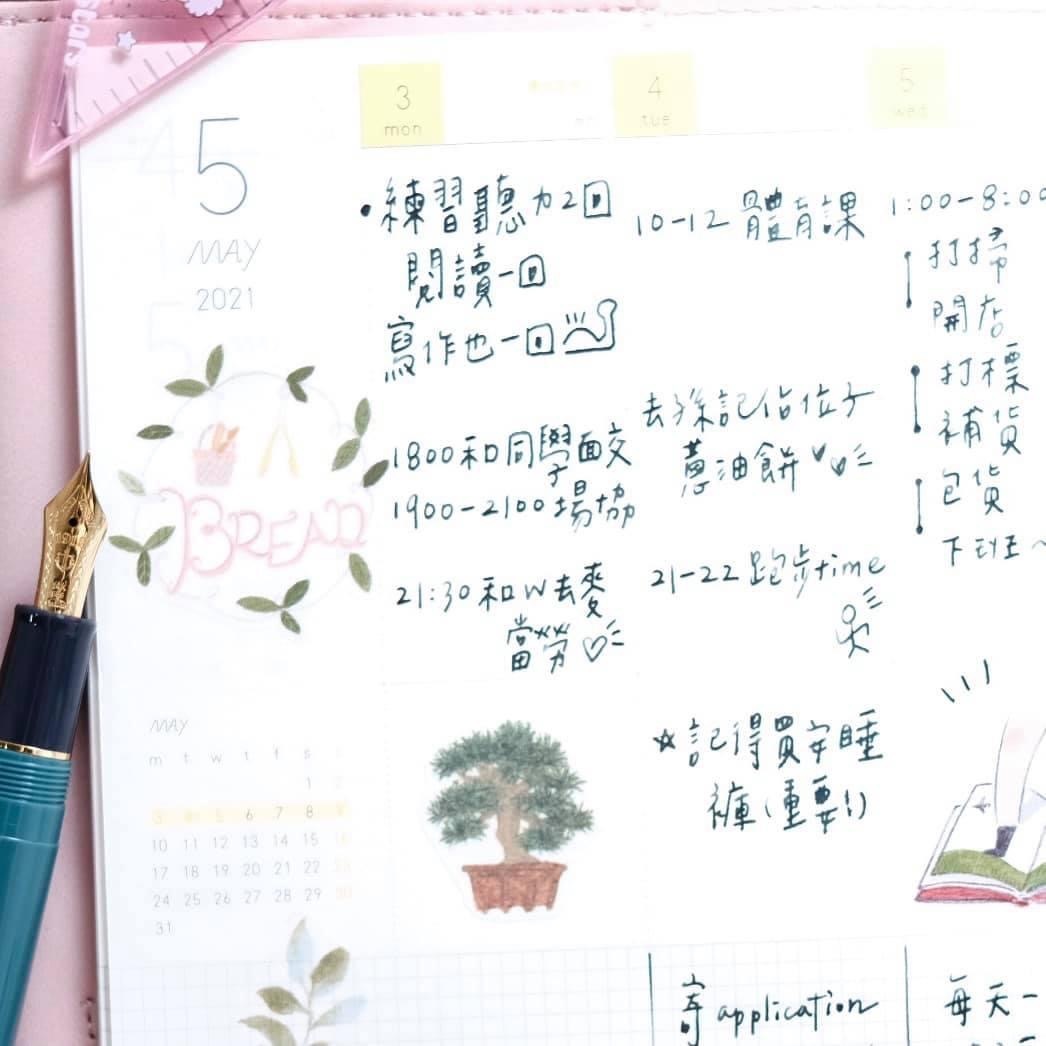 5
MAY
2021
BREAD
MAY
m t w t f s s
1 2
3 4 5 6 7 8 9
10 11 12 13 14 15 16
17 18 19 20 21 22 23
24 25 26 27 28 29 30
31
3
mon
•練習聽力2回
閱讀一回
寫作也一回
1800和同學面交
1900-2100場協
21:30和W去麥
當勞
4
tue
10-12 體育課
去孫記佔位子
蔥油餅
21-22 跑步time
☆記得買安睡
褲(重要!)
寄application
5
wed
1:00-8:00
打掃
開店
打標
補貨
包貨
下班~
每天一